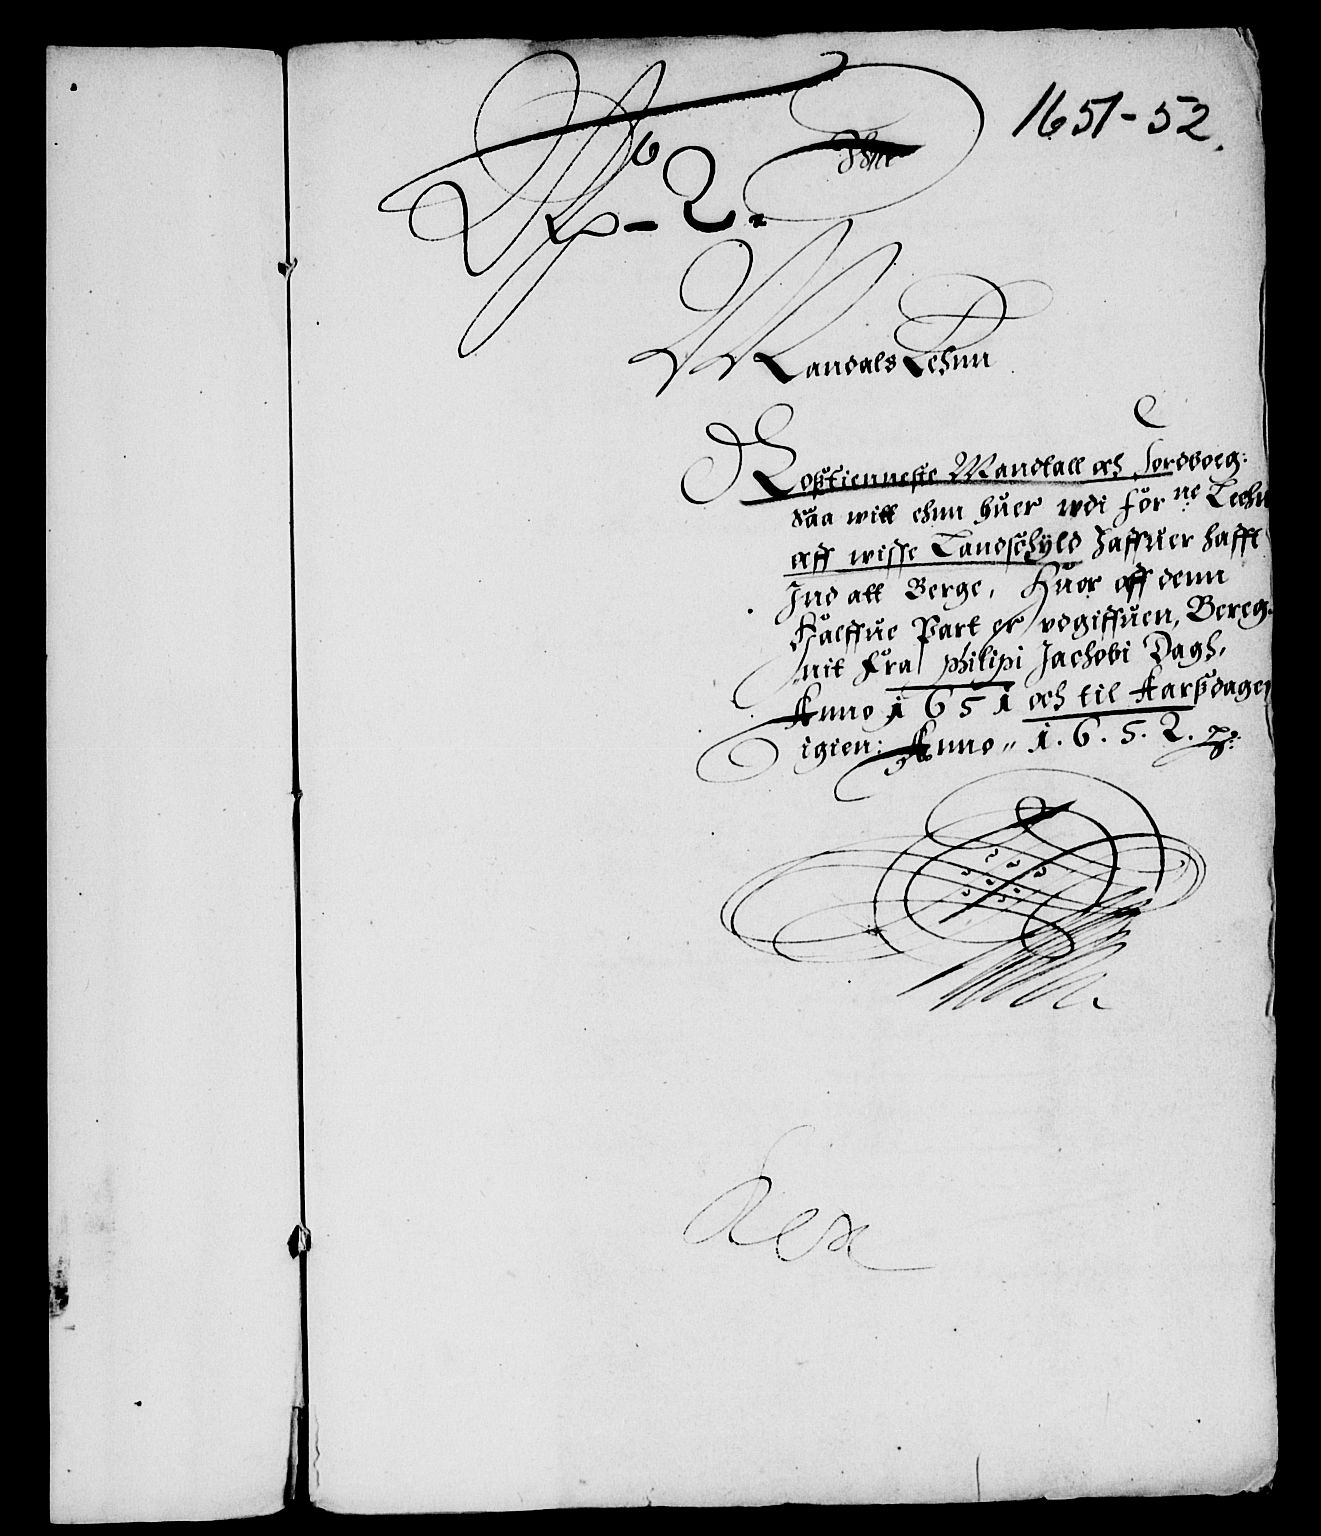 1651-52.
No 2.
Mandals Lehnn
Roßtienneste Mandtall och Jordboeg:
saa witt ehnn huer udi forne Leehn
aff wisse Landschyld Haffuer hafft
Ind att Berge, Huor aff denn
Halffue Part er udgiffuen, Bereg-
nit Fra philipi Jachobi Dagh,
Anno 1651 och til Aarßdagen
igien: Anno 1.6.5.2.